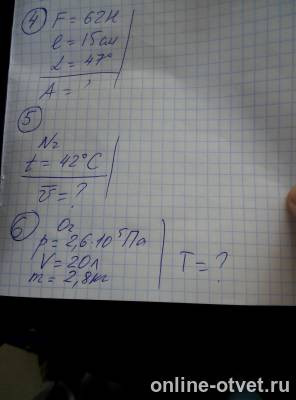 4 F = 62Н
l = 15 см
α = 47°
A = ?
5
N₂
t = 42°C
v̅ = ?
6 O₂
p = 2,6·10⁵ Па
V = 20л
m = 2,8кг
T = ?
online-otvet.ru